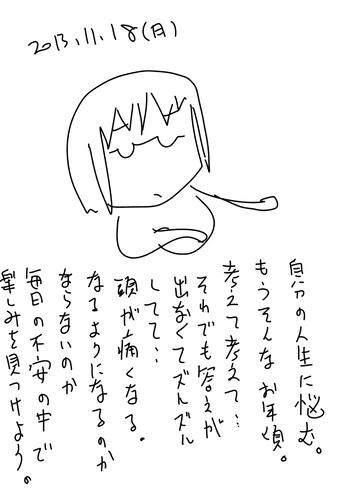 2013.11.18(月)
自分の人生に悩む。
もうそんなお年頃。
考えて考えて…
それでも答えが
出なくてズルズル
してて…
頭が痛くなる。
なるようになるのか
ならないのか
毎日の不安の中で
楽しみを見つけよう。